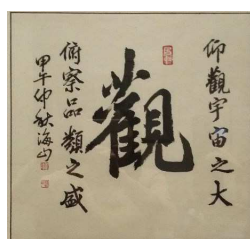 仰觀宇宙之大
觀
俯察品類之盛
甲午仲秋海山